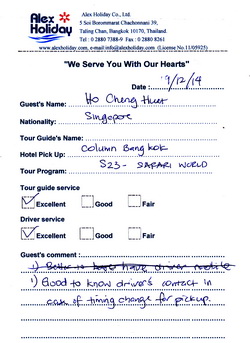 Alex Holiday
Alex Holiday Co., Ltd.
5 Soi Borommarat Chachonnani 39,
Taling Chan, Bangkok 10170, Thailand.
Tel : 0 2880 7388-9 Fax : 0 2880 8261
www.alexholiday.com, e-mail:info@alexholiday.com (License No.11/05925)
"We Serve You With Our Hearts"
Date : 9/12/14
Guest's Name: Ho Cheng Huet
Nationality: Singapore
Tour Guide's Name:
Hotel Pick Up: Column Bangkok
Tour Program: S23- SAFARI WORLD
Tour guide service
Excellent Good Fair
Driver service
Excellent Good Fair
Guest's comment
1) Better to have driver mobile
1) Good to know driver's contact in
case of timing change for pickup.